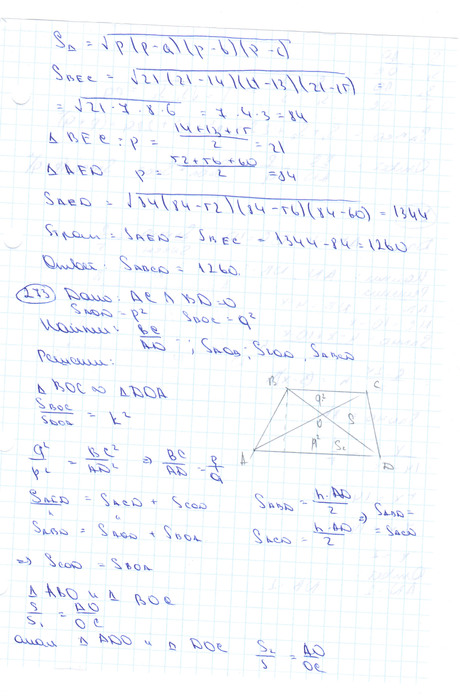 S△ = √p(p-a)(p-b)(p-c)
S BEC = √21(21-14)(21-13)(21-15) =
= √21·7·8·6 = 7·4·3 = 84
△ BEC: p = (14+13+15)/2 = 21
△ AED p = (52+56+60)/2 = 84
S AED = √84(84-52)(84-56)(84-60) = 1344
Sтрап = S AED - S BEC = 1344-84 = 1260
Ответ: S ABCD = 1260.
273 Дано: AC ∧ BD = O
S AOD = p² S BOC = q²
Найти: BC/AD ; S AOB; S COD, S ABCD
Решение:
△ BOC ∞ △ DOA
S BOC / S DOA = k²
B C
q²
O S
A² S₂
A D
q²/p² = BC²/AD² ⇒ BC/AD = p/q
S ACD = S AOD + S COD
S ABD = S AOD + S BOA
S ABD = h·AD/2
S ACD = h·AD/2
⇒ S ABD = S ACD
⇒ S COD = S BOA
△ ABO и △ BOC
S/S₁ = AO/OC
△ ADO и △ DOC S₂/S = AO/OC